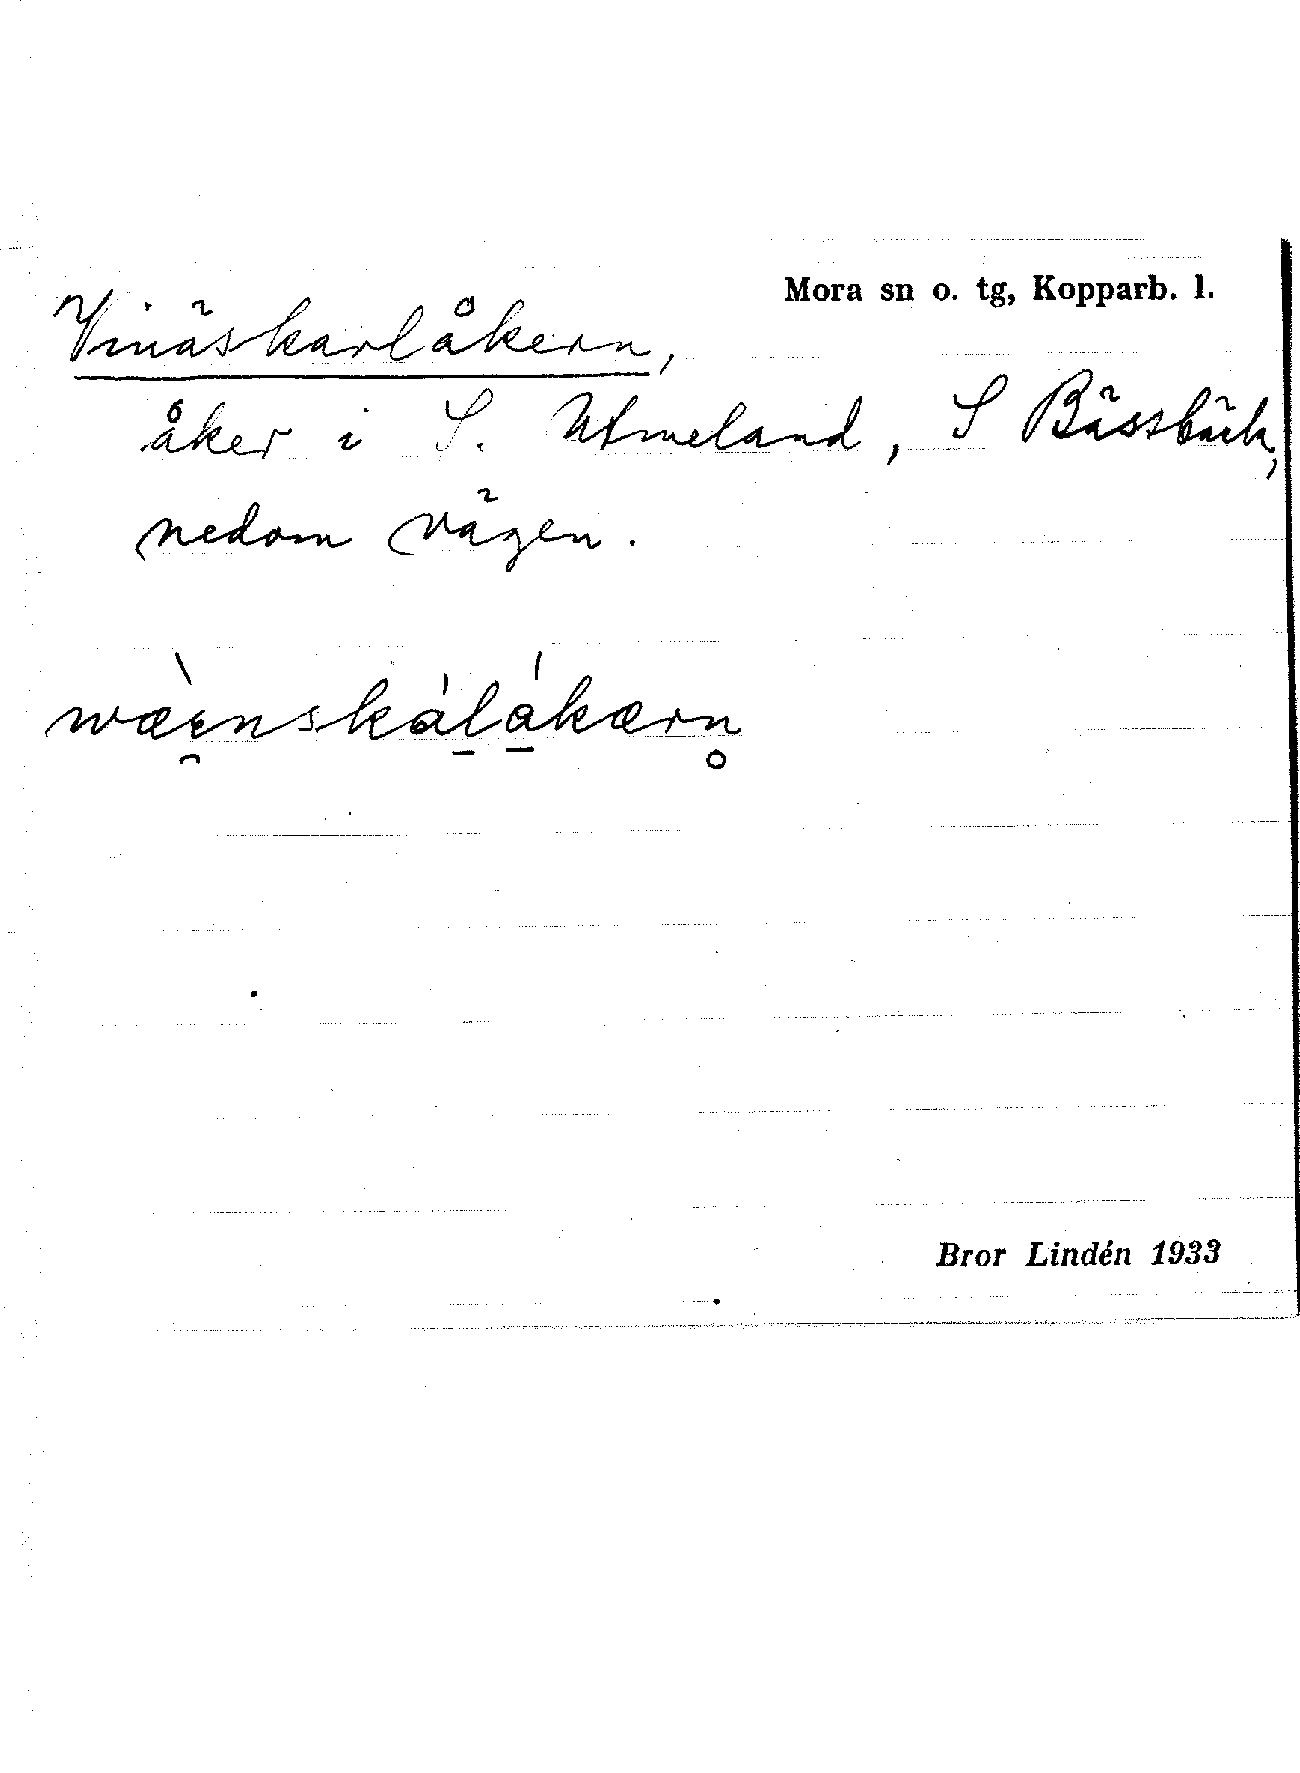 Mora sn o. tg, Kopparb. l.
Vinäskarlåkern,
åker i S. Utmeland, S Bässbäck,
nedom vägen.
wæ̀ɛ̯nskálá̱kærn̥
Bror Lindén 1933